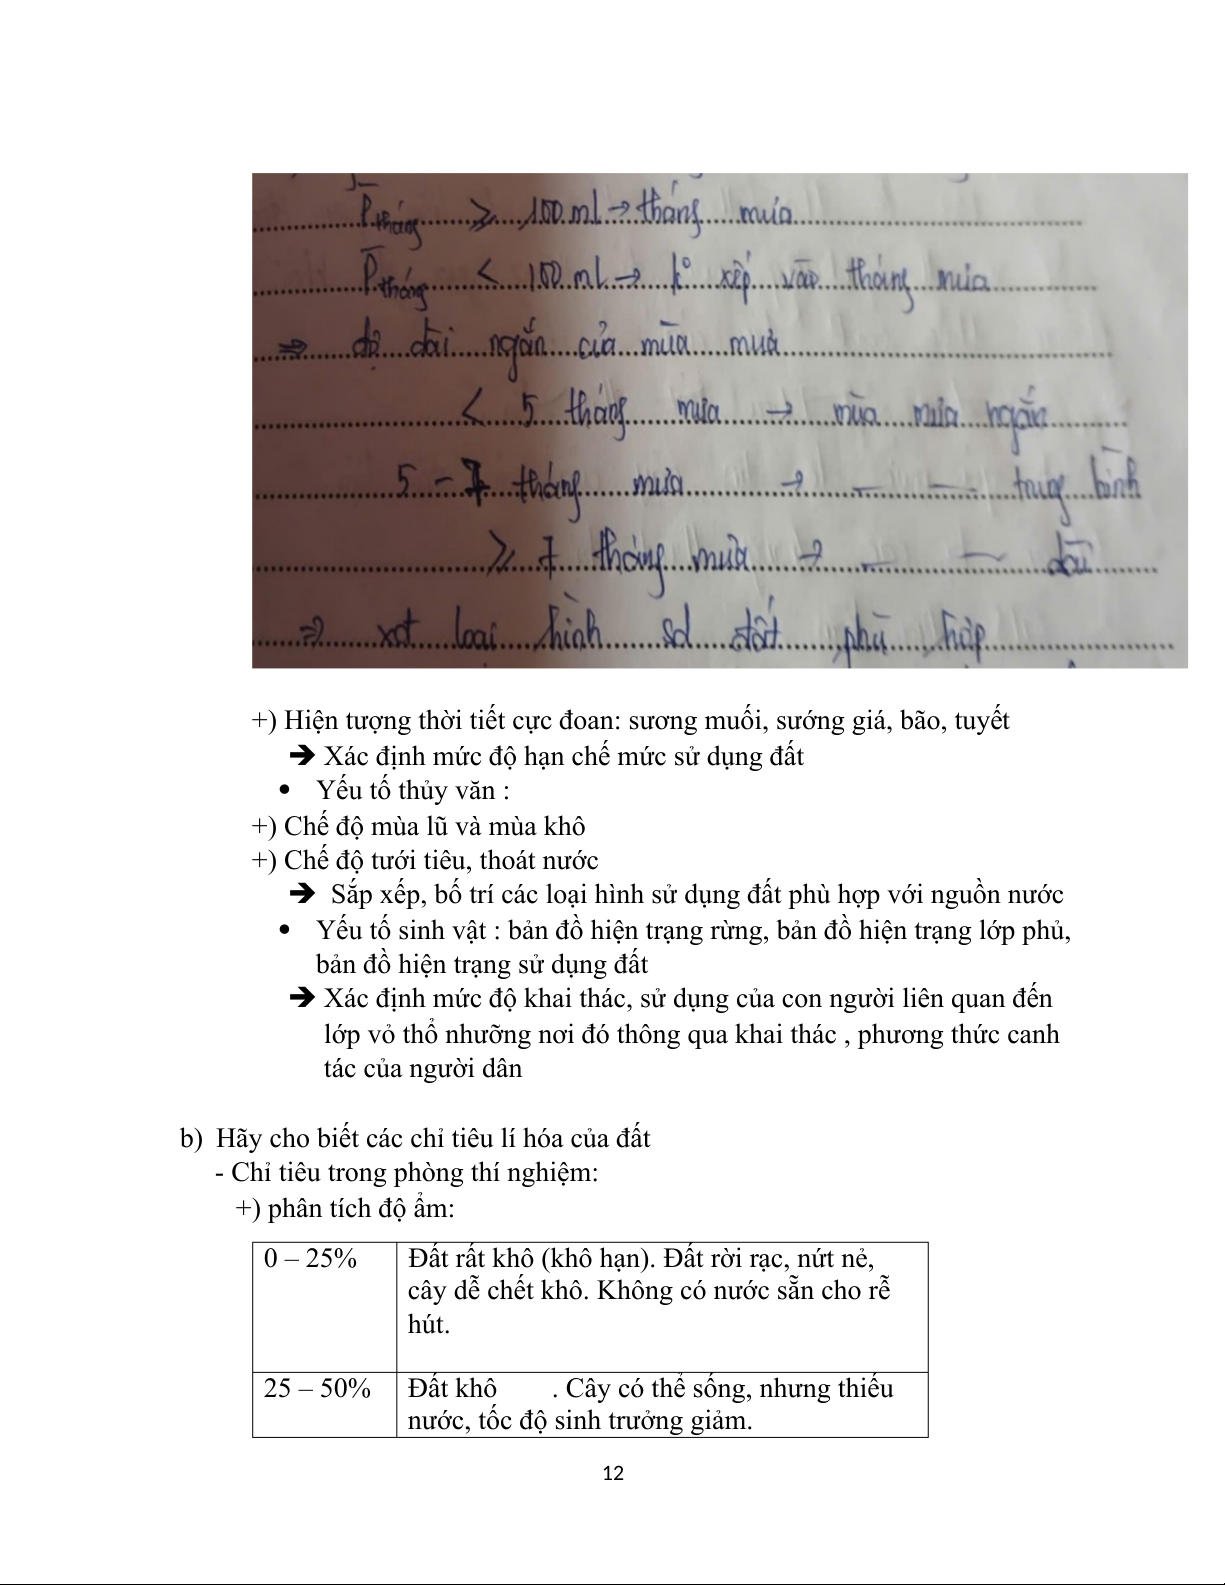 P̅tháng ≥ 100 ml → tháng mưa
P̅tháng < 100 ml → k° xếp vào tháng mưa
⇒ độ dài ngắn của mùa mưa
< 5 tháng mưa → mùa mưa ngắn
5 – 7 tháng mưa → — — trung bình
≥ 7 tháng mưa → — — dài
⇒ xđ loại hình sd đất phù hợp
+) Hiện tượng thời tiết cực đoan: sương muối, sướng giá, bão, tuyết
➔ Xác định mức độ hạn chế mức sử dụng đất
• Yếu tố thủy văn :
+) Chế độ mùa lũ và mùa khô
+) Chế độ tưới tiêu, thoát nước
➔ Sắp xếp, bố trí các loại hình sử dụng đất phù hợp với nguồn nước
• Yếu tố sinh vật : bản đồ hiện trạng rừng, bản đồ hiện trạng lớp phủ,
bản đồ hiện trạng sử dụng đất
➔ Xác định mức độ khai thác, sử dụng của con người liên quan đến
lớp vỏ thổ nhưỡng nơi đó thông qua khai thác , phương thức canh
tác của người dân
b) Hãy cho biết các chỉ tiêu lí hóa của đất
- Chỉ tiêu trong phòng thí nghiệm:
+) phân tích độ ẩm:
0 – 25% Đất rất khô (khô hạn). Đất rời rạc, nứt nẻ,
cây dễ chết khô. Không có nước sẵn cho rễ
hút.
25 – 50% Đất khô . Cây có thể sống, nhưng thiếu
nước, tốc độ sinh trưởng giảm.
12